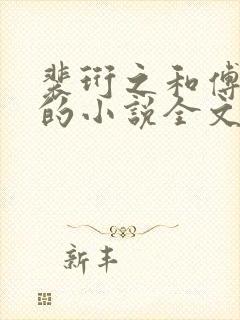 裴衍之和傅
的小说全文
新丰